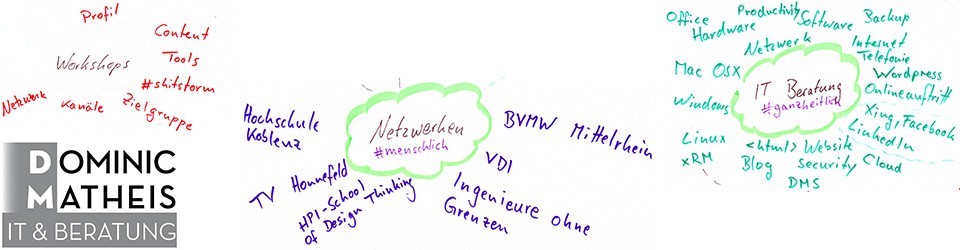 Profil
Content
Workshops
Tools
#shitstorm
Netzwerk
Kanäle
Zielgruppe
DOMINIC
MATHEIS
IT & BERATUNG
Netzwerken
#menschlich
Hochschule
Koblenz
BVMW Mittelrhein
VDI
TV Honnefeld
HPI-School
of Design Thinking
Ingenieure ohne
Grenzen
IT Beratung
#ganzheitlich
Office
Hardware
Productivity
Software
Backup
Netzwerk
Internet
Telefonie
Mac OSX
Wordpress
Onlineauftritt
Windows
Xing, Facebook
LinkedIn
Linux
<html> Website
xRM
Blog
Security
Cloud
DMS